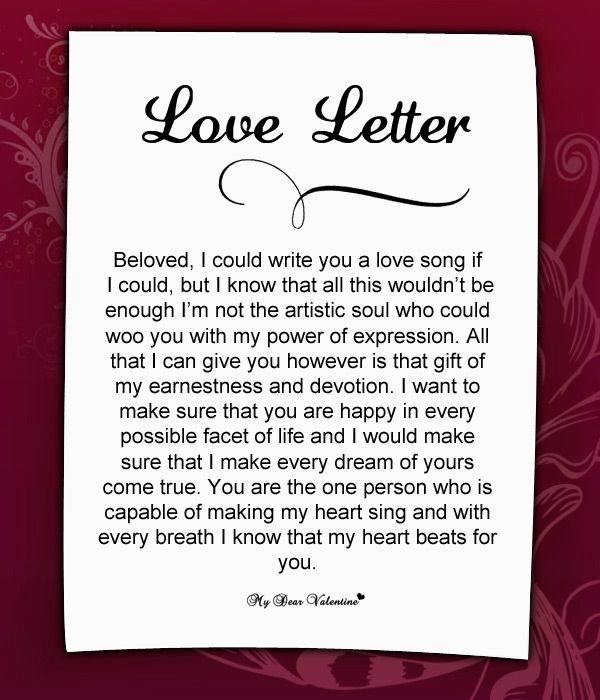 Love Letter
Beloved, I could write you a love song if
I could, but I know that all this wouldn't be
enough I'm not the artistic soul who could
woo you with my power of expression. All
that I can give you however is that gift of
my earnestness and devotion. I want to
make sure that you are happy in every
possible facet of life and I would make
sure that I make every dream of yours
come true. You are the one person who is
capable of making my heart sing and with
every breath I know that my heart beats for
you.
My Dear Valentine